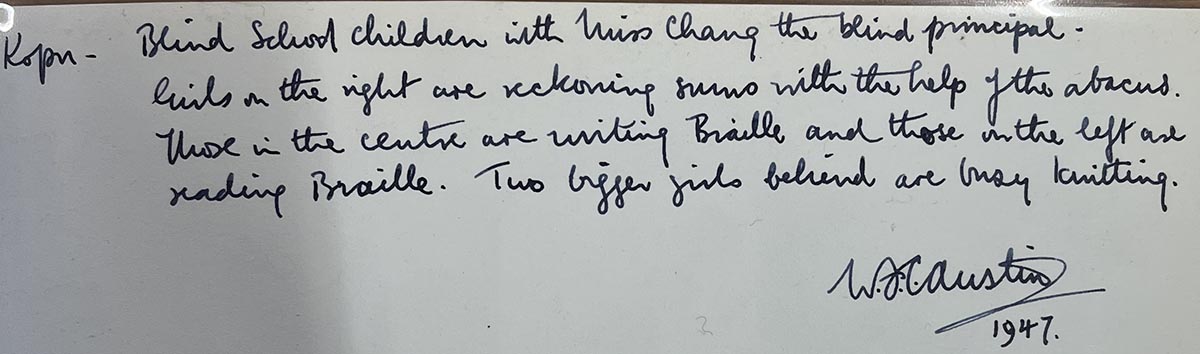 Kopu- Blind School children with Miss Chang the blind principal-
Girls on the right are reckoning sums with the help of the abacus.
Those in the centre are writing Braille and those on the left are
reading Braille. Two bigger girls behind are busy knitting.
W.J.C. Austin
1947.